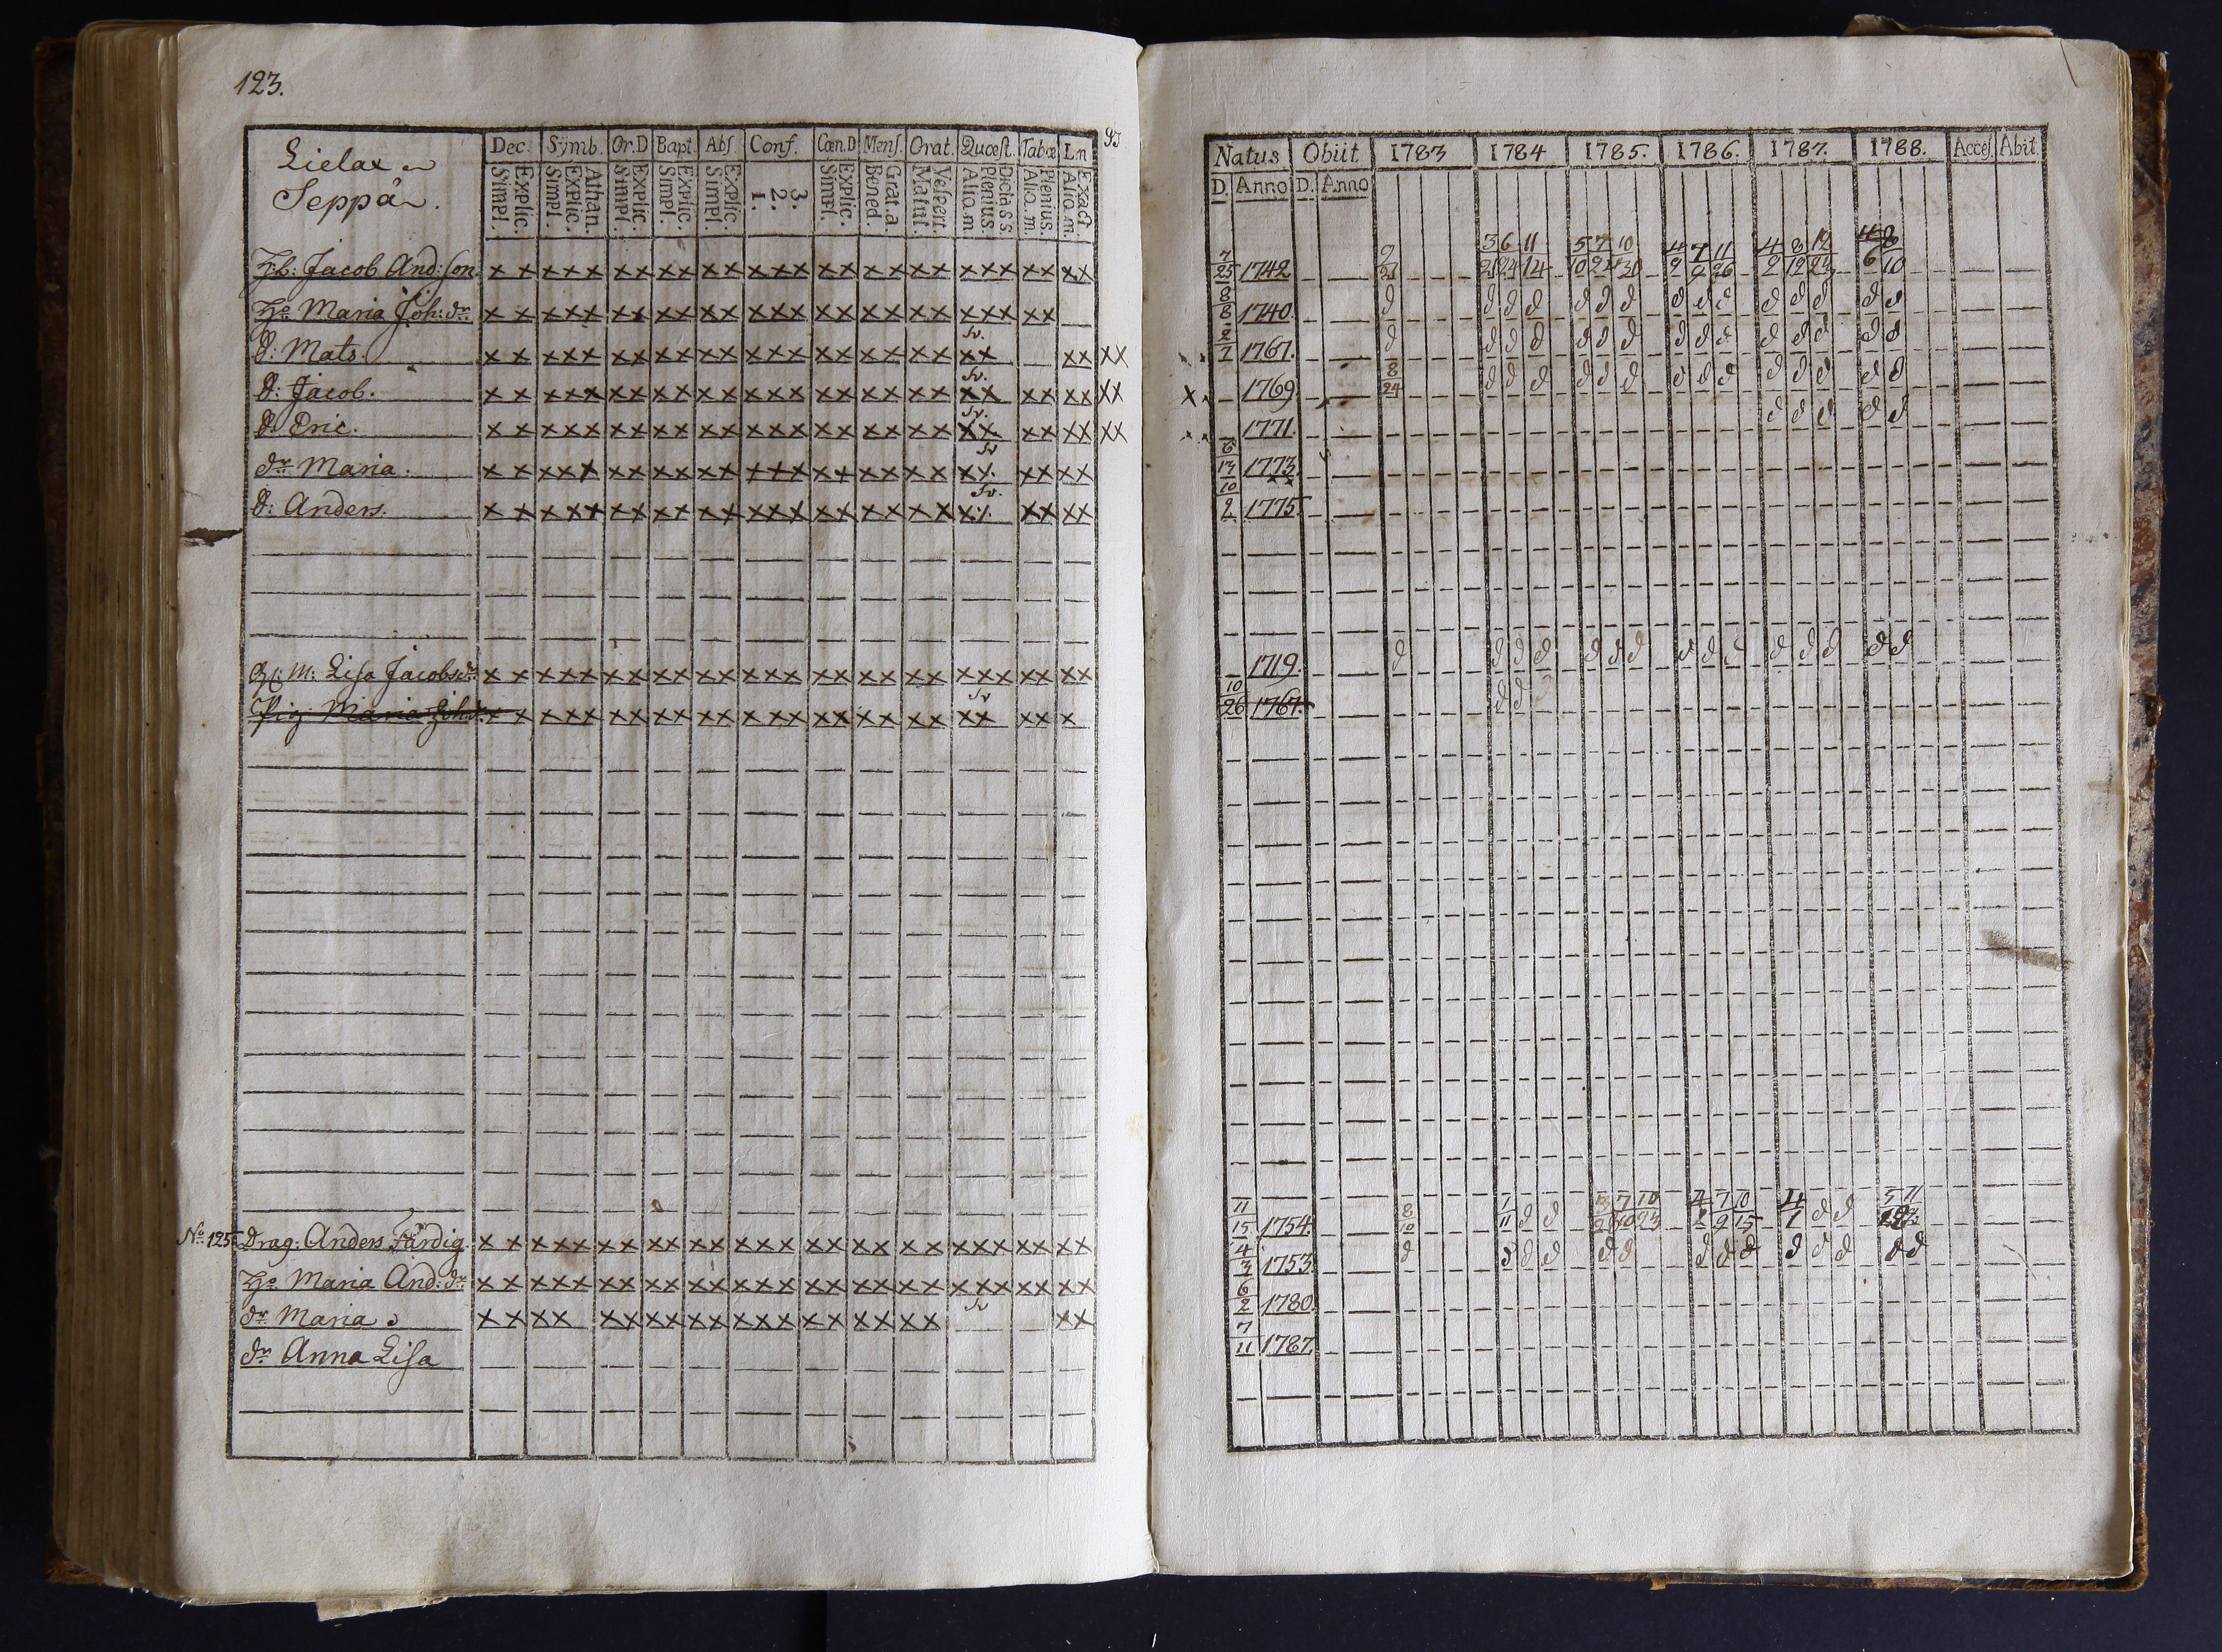 123.
Lielax
Seppä
Dec. Symb. Or.D Bapt Abſ. Conf. Cœn.D Menſ. Orat. Quœſt. Tabœ L.n
Explic. Simpl. Athan. Explic. Simpl. Explic. Simpl. Explic. Simpl. Explic. Simpl. 3. 2. 1. Explic. Simpl. Grat.a. Bened. Veſpert. Matut. Dicta S S Plenius. Aliq.m Plenius. Aliq.m. Exact Aliq.m.
Jacob And:ſon. x x x x x x x x x x x x x x x x x x x x x x x x x x x
Hu Maria Joh: dr x x x x x x x x x x x x x x x x x x x x x x x x x
Sv.
S: Mats. x x x x x x x x x x x x x x x x x x x x x x x x x x
Sv.
S: Jacob. x x x x x x x x x x x x x x x x x x x x x x x x x x x x
Sv.
S: Eric. x x x x x x x x x x x x x x x x x x x x x x x x x x x x
Sv
dr Maria. x x x x x x x x x x x x x x x x x x x x x x x x x x
Sv.
S: Anders. x x x x x x x x x x x x x x x x x x x x x x x x x x
M: Liſa Jacobsdr x x x x x x x x x x x x x x x x x x x x x x x x x x x
Sv
Pig: Maria Joh:dr x x x x x x x x x x x x x x x x x x x x x x x x x
No 125 Drag: Anders Färdig. x x x x x x x x x x x x x x x x x x x x x x x x x x x
Hu Maria And: dr x x x x x x x x x x x x x x x x x x x x x x x x x x x
Sv
dr Maria x x x x x x x x x x x x x x x x x x x x x x
dr Anna Liſa
Natus Obiit 1783 1784 1785. 1786. 1787. 1788. Acceſ. Abit.
D. Anno D. Anno
7 9 3 6 11 5 7 10 4 7 11 4 8 12
25 1742 21 21 24 14 10 24 30 2 9 26 2 12 23 6 10
8
8 1740. d d d d d d d d d d d d d d d
2
7 1767. d d d d d d d d d d d d d d d
8
x 1769 24 d d d d d d d d d d d d d d
1771. d d d d d
6
13 1773.
10
2 1775.
1719. d d d d d d d d d d d d d d d
10
26 1767. d d
11 8 7 3 7 10 4 7 10 4 5 11
15 1754. 10 11 d d 2 9 15 1 d d
4
3 1753. d d d d d d d d d d d d d d
6
2 1780.
7
11 1787.